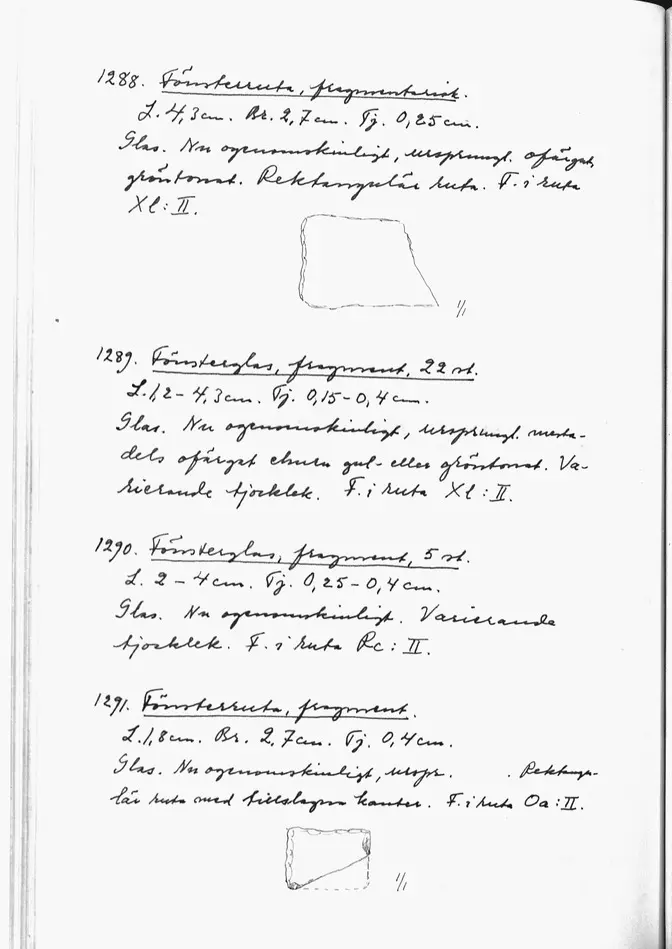 1288. Fönsterruta, fragmentarisk.
L. 4,3 cm. Br. 2,7 cm. Tj. 0,25 cm.
Glas. Nu ogenomskinligt, ursprungl. ofärgat,
gröntonat. Rektangulär ruta. F. i ruta
Xl : II.
1/1
1289. Fönsterglas, fragment, 22 st.
L. 1,2 – 4,3 cm. Tj. 0,15 – 0,4 cm.
Glas. Nu ogenomskinligt, ursprungl. mesta-
dels ofärgat ehuru gul- eller gröntonat. Va-
rierande tjocklek. F. i ruta Xl : II.
1290. Fönsterglas, fragment, 5 st.
L. 2 – 4 cm. Tj. 0,25 – 0,4 cm.
Glas. Nu ogenomskinligt. Varierande
tjocklek. F. i ruta Rc : II.
1291. Fönsterruta, fragment.
L. 1,8 cm. Br. 2,7 cm. Tj. 0,4 cm.
Glas. Nu ogenomskinligt, urspr. . Rektangu-
lär ruta med tillslagna kanter. F. i ruta Oa : II.
1/1